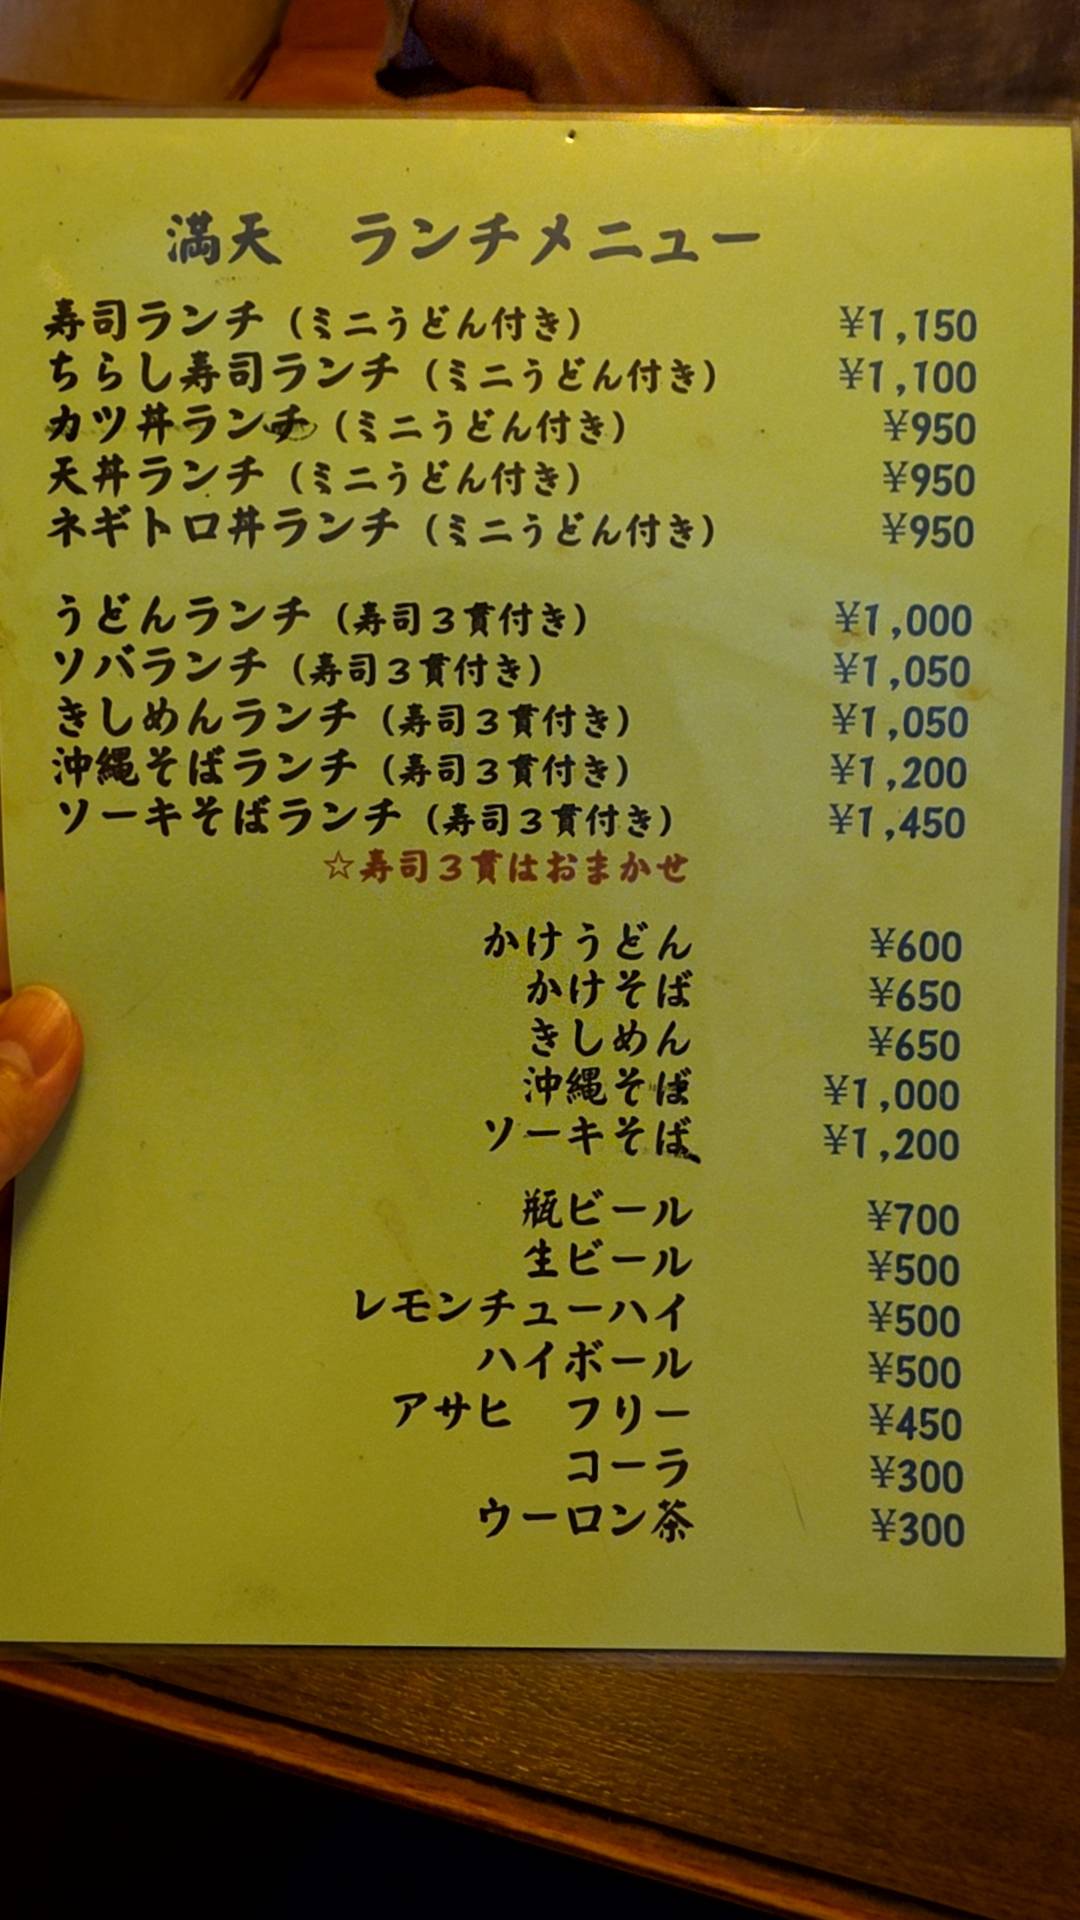 満天　ランチメニュー
寿司ランチ（ミニうどん付き） ¥1,150
ちらし寿司ランチ（ミニうどん付き） ¥1,100
カツ丼ランチ（ミニうどん付き） ¥950
天丼ランチ（ミニうどん付き） ¥950
ネギトロ丼ランチ（ミニうどん付き） ¥950
うどんランチ（寿司３貫付き） ¥1,000
ソバランチ（寿司３貫付き） ¥1,050
きしめんランチ（寿司３貫付き） ¥1,050
沖縄そばランチ（寿司３貫付き） ¥1,200
ソーキそばランチ（寿司３貫付き） ¥1,450
☆寿司３貫はおまかせ
かけうどん ¥600
かけそば ¥650
きしめん ¥650
沖縄そば ¥1,000
ソーキそば ¥1,200
瓶ビール ¥700
生ビール ¥500
レモンチューハイ ¥500
ハイボール ¥500
アサヒ　フリー ¥450
コーラ ¥300
ウーロン茶 ¥300